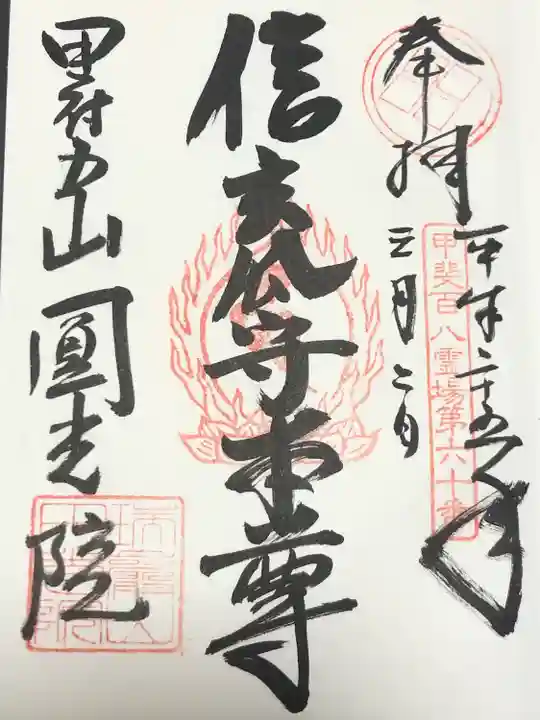 奉拝
平成二十五年
三月二日
甲斐百八霊場第六十番
信玄公守本尊
甲府五山
圓光院